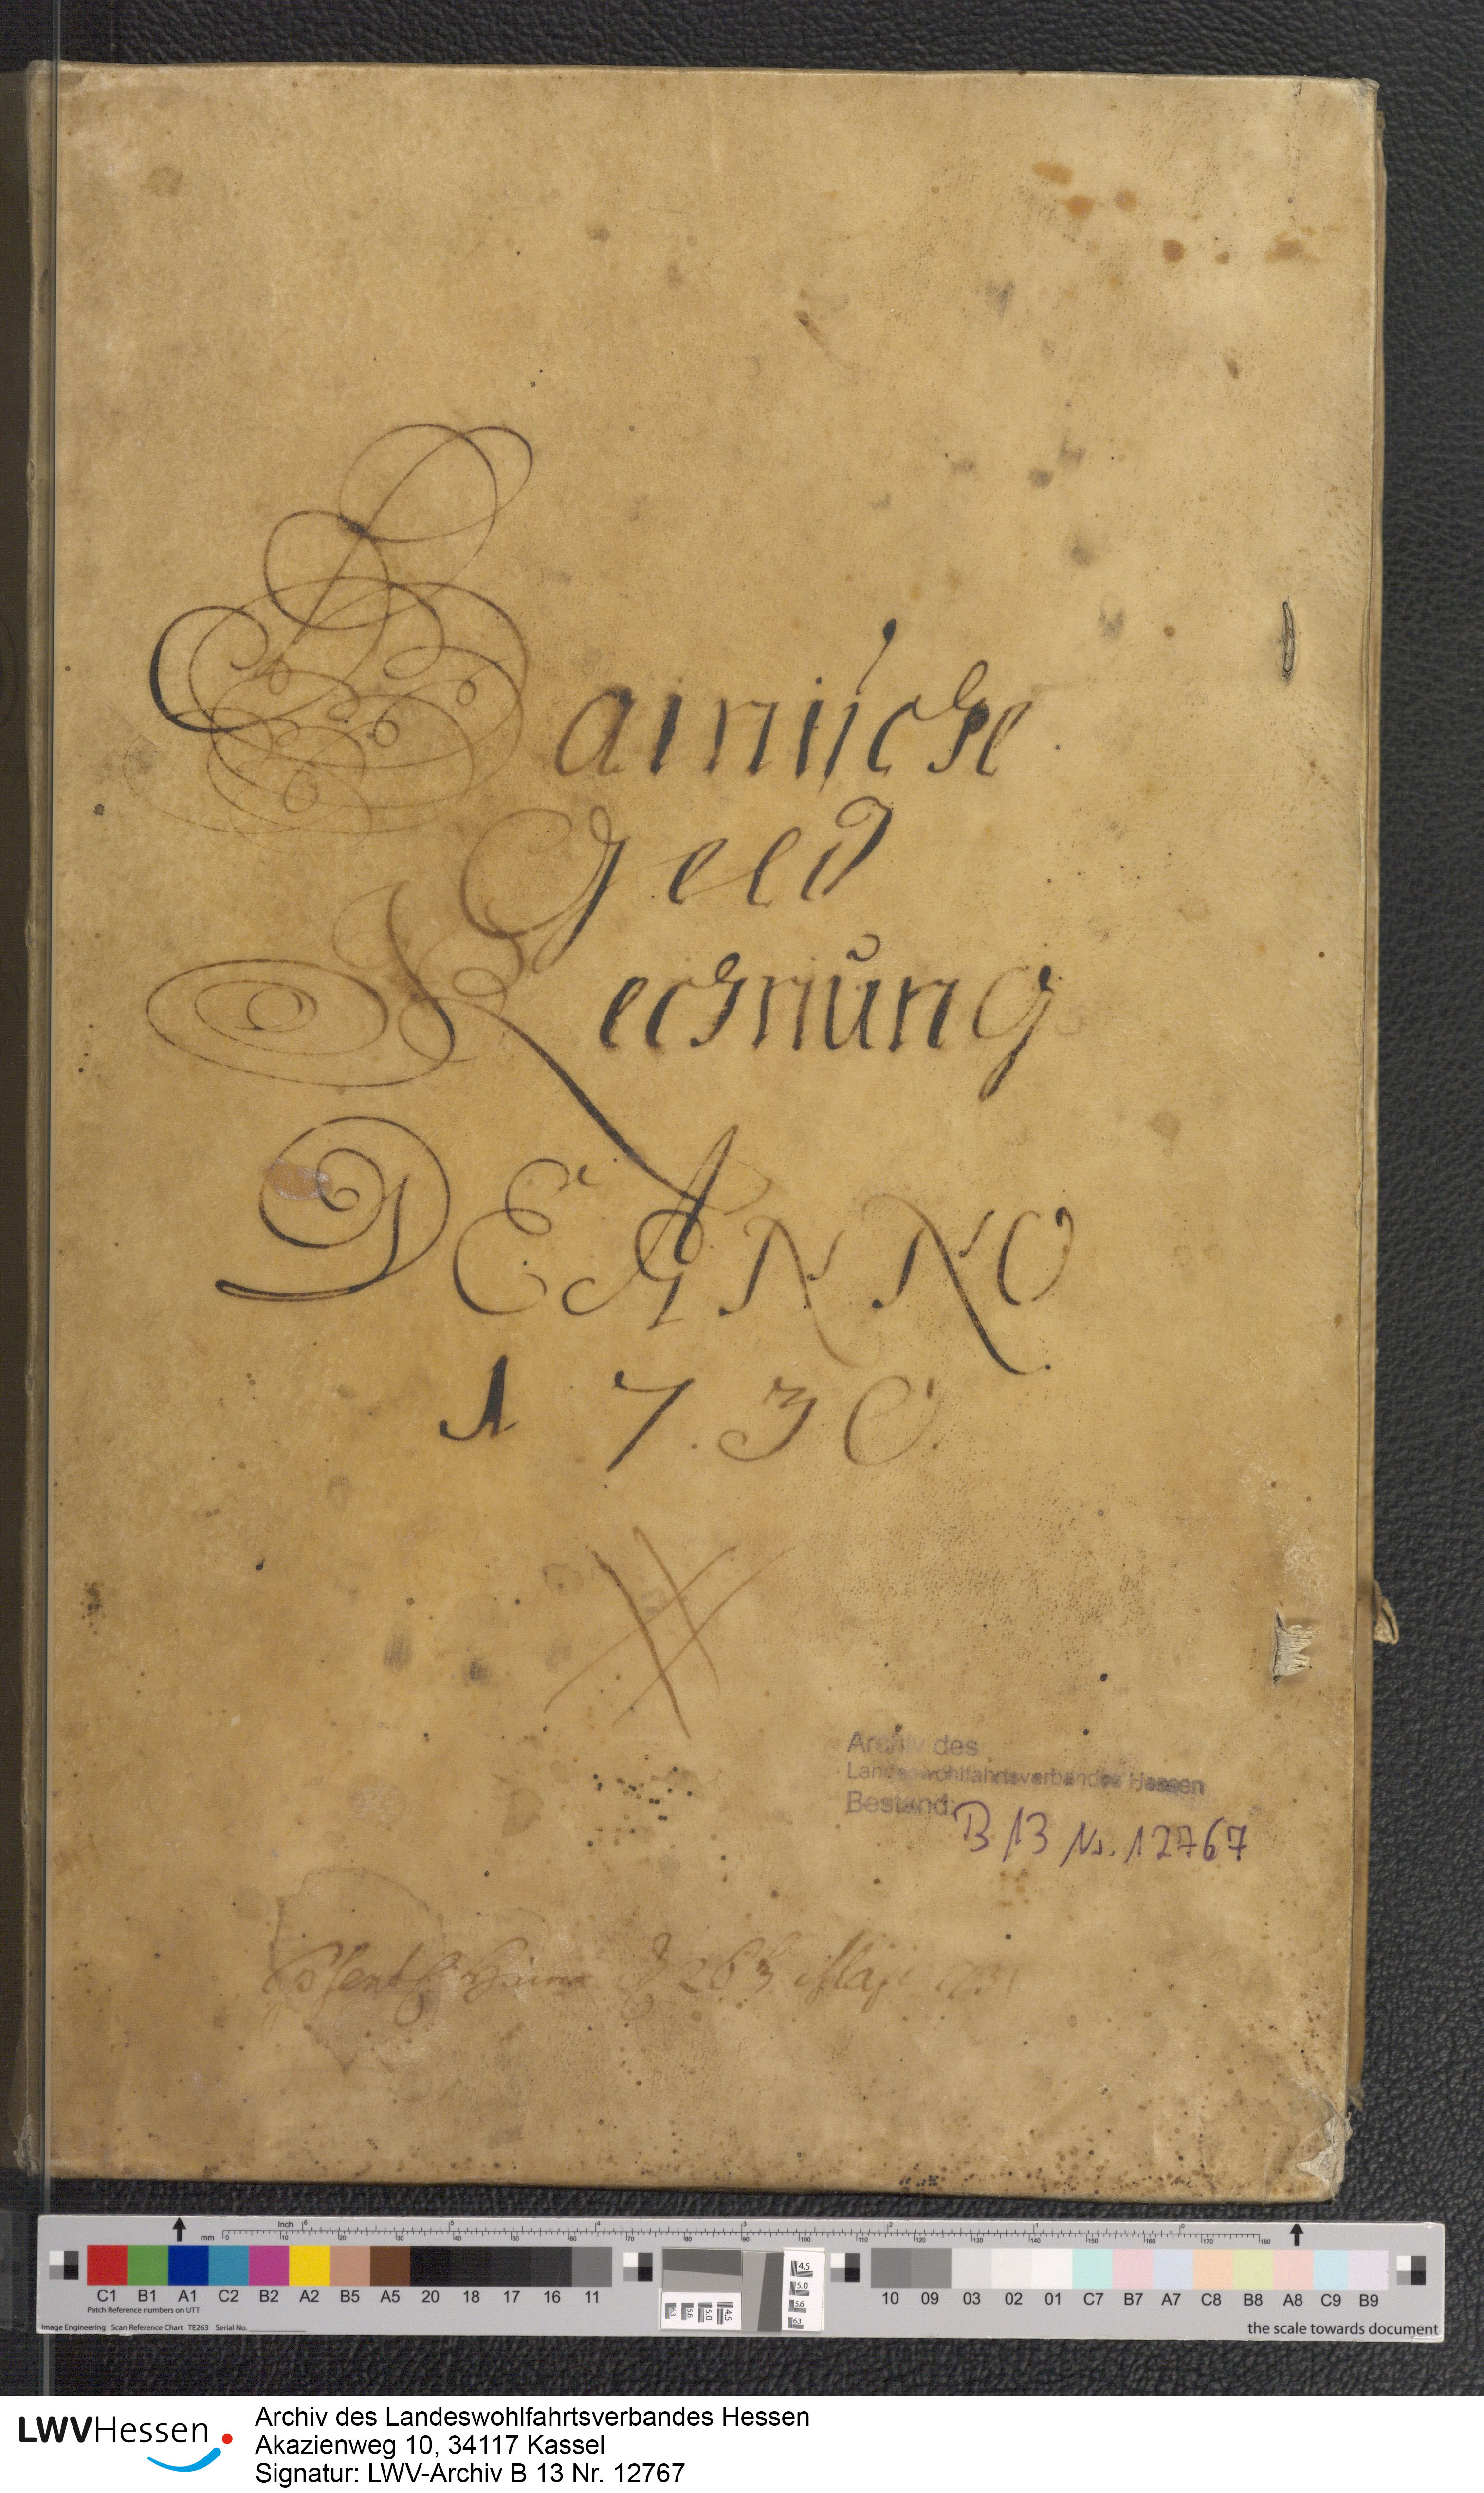 Hainische
Geld
Rechnŭng
DE ANNO
1730.
Archiv des
Landeswohlfahrtsverbandes Hessen
Bestand:
B 13 Nr. 12767
Maji
mm
Inch
C1 B1 A1 C2 B2 A2 B5 A5 20 18 17 16 11
10 09 03 02 01 C7 B7 A7 C8 B8 A8 C9 B9
Patch Reference numbers on UTT
Image Engineering Scan Reference Chart TE263 Serial No.
the scale towards document
LWVHessen
Archiv des Landeswohlfahrtsverbandes Hessen
Akazienweg 10, 34117 Kassel
Signatur: LWV-Archiv B 13 Nr. 12767